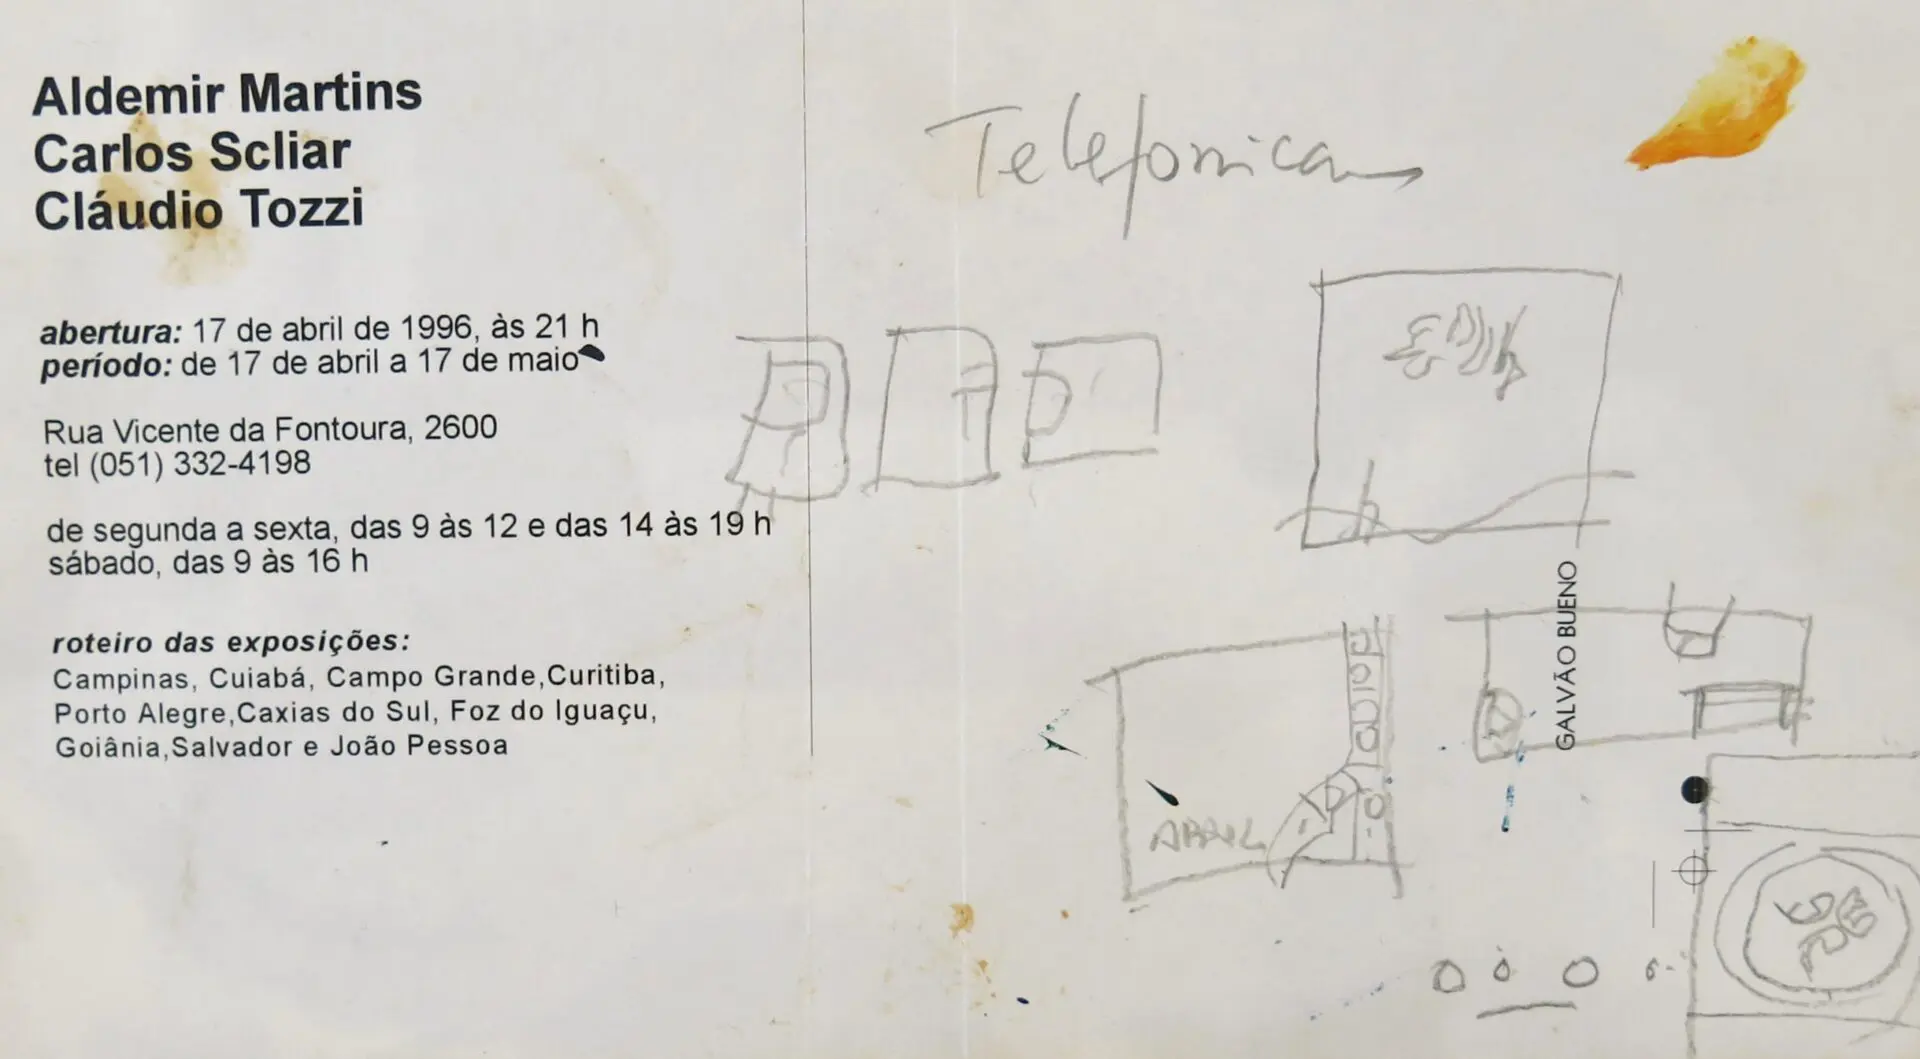 Aldemir Martins
Carlos Scliar
Cláudio Tozzi
abertura: 17 de abril de 1996, às 21 h
período: de 17 de abril a 17 de maio
Rua Vicente da Fontoura, 2600
tel (051) 332-4198
de segunda a sexta, das 9 às 12 e das 14 às 19 h
sábado, das 9 às 16 h
roteiro das exposições:
Campinas, Cuiabá, Campo Grande,Curitiba,
Porto Alegre,Caxias do Sul, Foz do Iguaçu,
Goiânia,Salvador e João Pessoa
Telefonica
GALVÃO BUENO
ABRIL